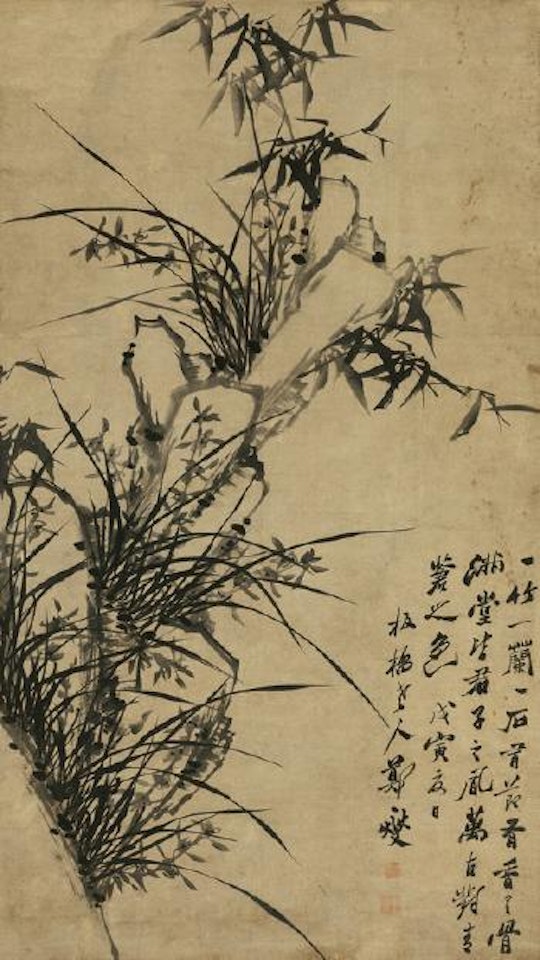 一竹一蘭一石有節有香有骨
滿堂皆君子之風萬古對青
蒼之色 戊寅夏日
板橋老人鄭燮